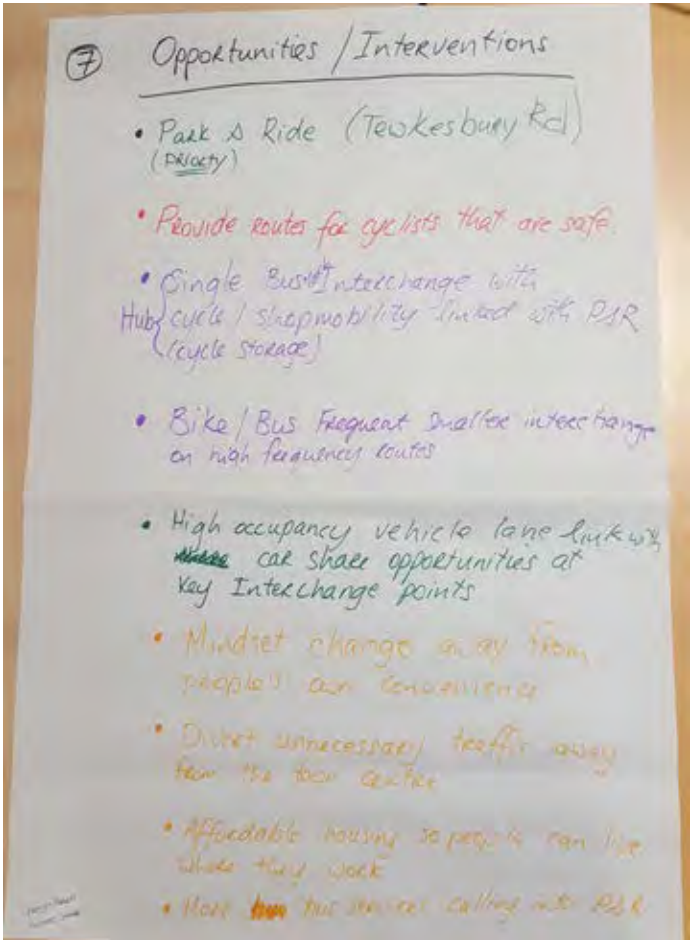 7 Opportunities / Interventions
• Park & Ride (Tewkesbury Rd)
(PRIORTY)
• Provide routes for cyclists that are safe.
• Single Bus Interchange with
Hub cycle / shopmobility linked with P&R
(cycle storage)
• Bike / Bus Frequent smaller interchange
on high frequency routes
• High occupancy vehicle lane link with
car share opportunities at
Key Interchange points
• Mindset change away from
people's own convenience
• Divert unnecessary traffic away
from the town centre
• Affordable housing so people can live
where they work
• More bus services calling into P&R